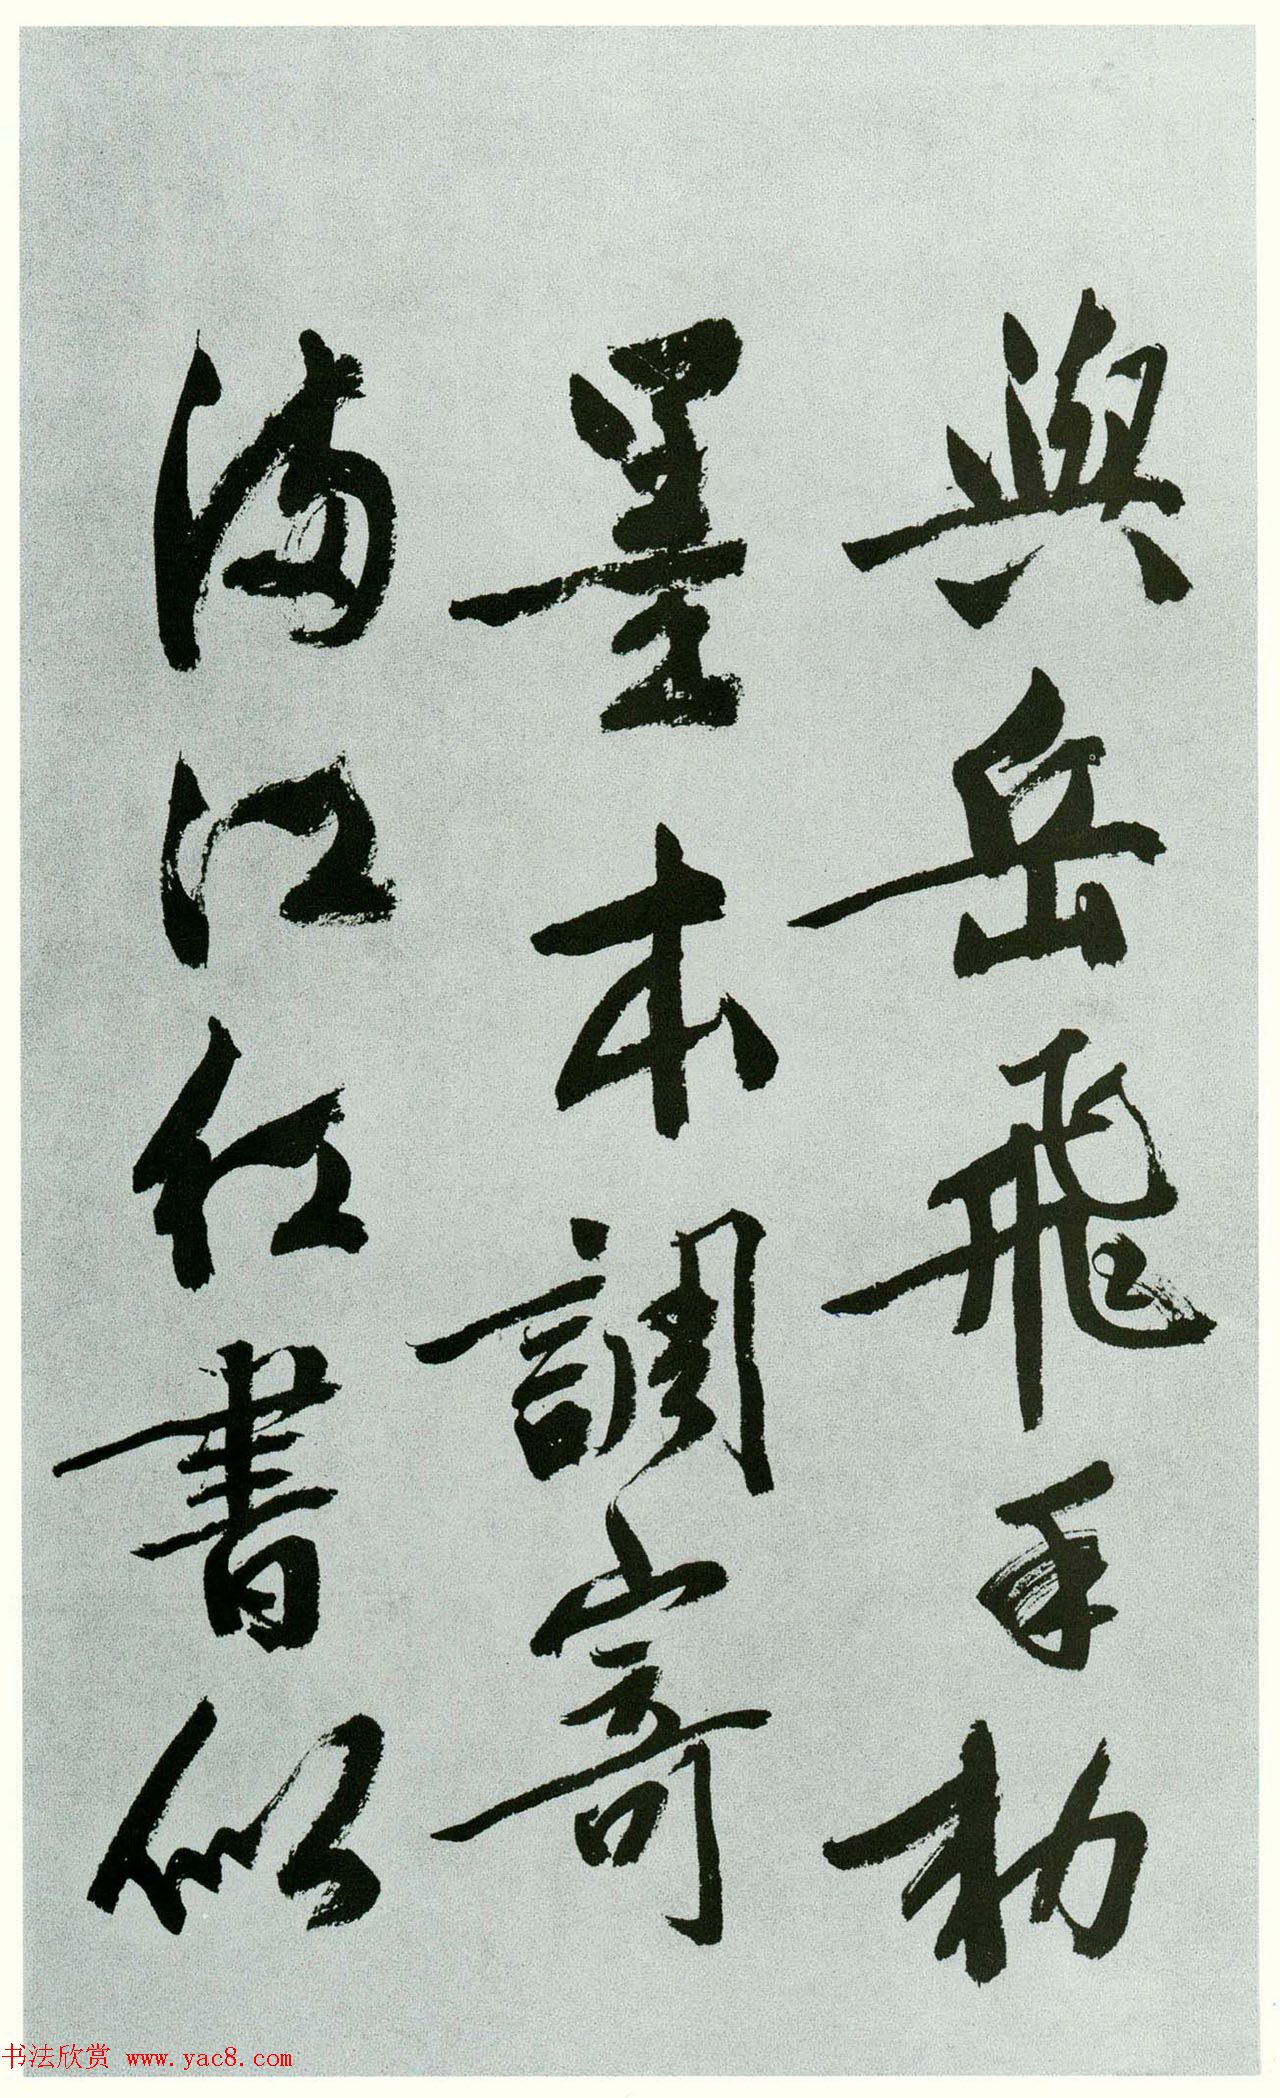 與岳飛手勅
墨本調寄
滿江紅書似
书法欣赏 www.yac8.com